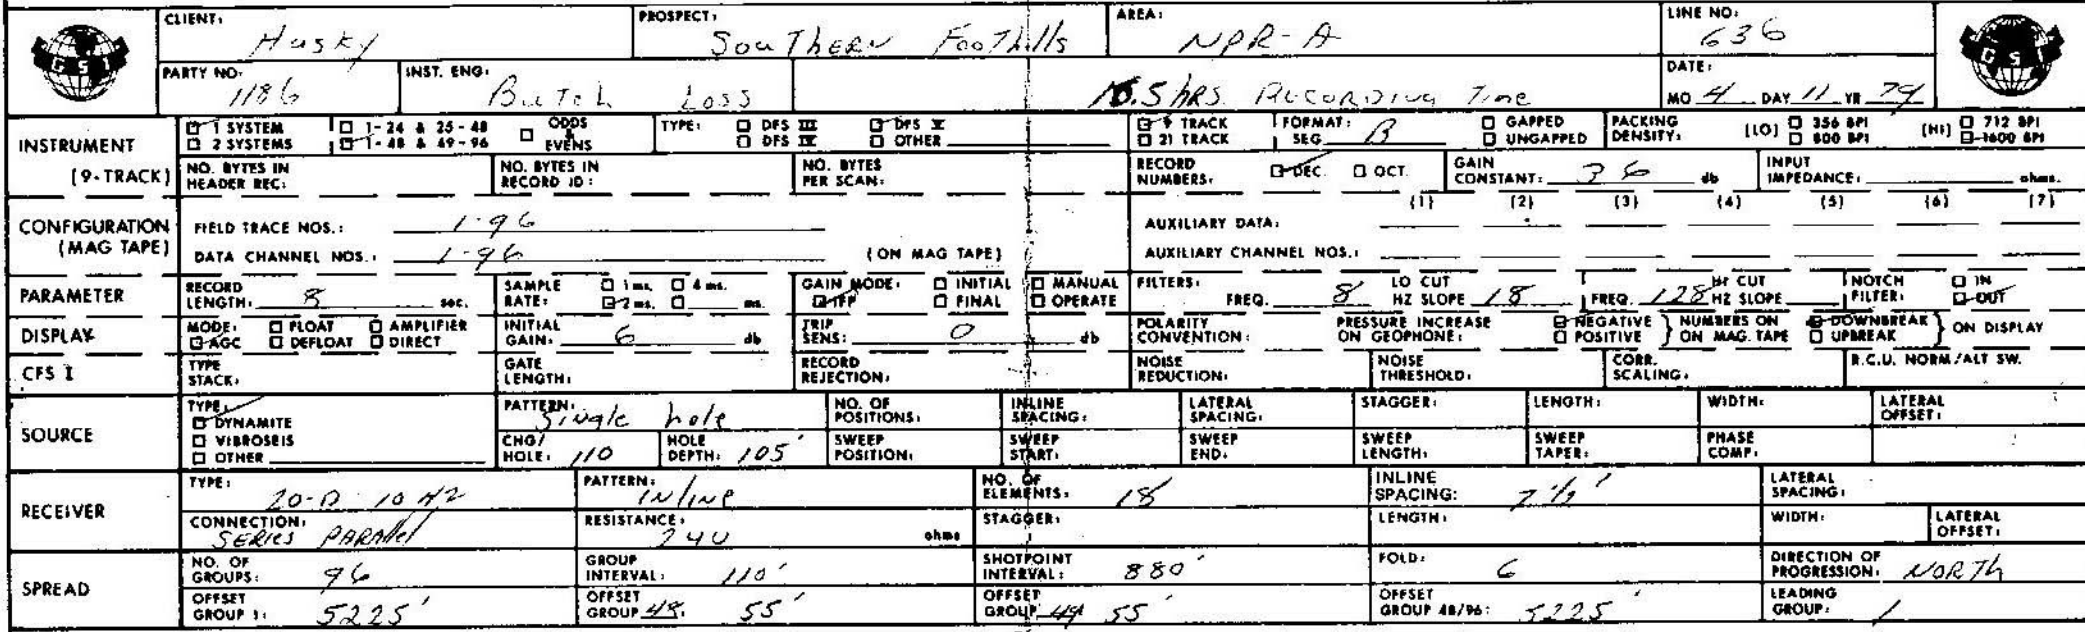 CLIENT: Husky PROSPECT: Southern Foothills AREA: NPR-A LINE NO: 636
GSI GSI
PARTY NO: 1186 INST. ENG: Butch Loss 10.5 hrs. Recording Time DATE: MO 4 DAY 11 YR 79
INSTRUMENT (9-TRACK) 1 SYSTEM 1-24 & 25-48 ODDS & EVENS TYPE: DFS III DFS V 9 TRACK FORMAT: SEG B GAPPED PACKING DENSITY: (LO) 356 BPI (HI) 712 BPI
2 SYSTEMS 1-48 & 49-96 DFS IV OTHER 21 TRACK UNGAPPED 800 BPI 1600 BPI
NO. BYTES IN HEADER REC: NO. BYTES IN RECORD ID: NO. BYTES PER SCAN: RECORD NUMBERS: DEC. OCT. GAIN CONSTANT: 36 db INPUT IMPEDANCE: ohms.
CONFIGURATION (MAG TAPE) (1) (2) (3) (4) (5) (6) (7)
FIELD TRACE NOS.: 1-96 AUXILIARY DATA:
DATA CHANNEL NOS.: 1-96 (ON MAG TAPE) AUXILIARY CHANNEL NOS.:
PARAMETER RECORD LENGTH: 8 sec. SAMPLE RATE: 1 ms. 4 ms. 2 ms. ms. GAIN MODE: INITIAL MANUAL IFP FINAL OPERATE FILTERS: FREQ. 8 LO CUT HZ SLOPE 18 FREQ. 128 HI CUT HZ SLOPE NOTCH FILTER: IN OUT
DISPLAY MODE: FLOAT AMPLIFIER AGC DEFLOAT DIRECT INITIAL GAIN: 6 db TRIP SENS: 0 db POLARITY CONVENTION: PRESSURE INCREASE ON GEOPHONE: NEGATIVE POSITIVE NUMBERS ON ON MAG. TAPE DOWNBREAK UPBREAK ON DISPLAY
CFS I TYPE STACK: GATE LENGTH: RECORD REJECTION: NOISE REDUCTION: NOISE THRESHOLD: CORR. SCALING: R.C.U. NORM/ALT SW.
SOURCE TYPE: DYNAMITE VIBROSEIS OTHER PATTERN: Single hole NO. OF POSITIONS: INLINE SPACING: LATERAL SPACING: STAGGER: LENGTH: WIDTH: LATERAL OFFSET:
CHG/HOLE: 110 HOLE DEPTH: 105' SWEEP POSITION: SWEEP START: SWEEP END: SWEEP LENGTH: SWEEP TAPER: PHASE COMP:
RECEIVER TYPE: 20-D 10 HZ PATTERN: INLINE NO. OF ELEMENTS: 18 INLINE SPACING: 7 1/2' LATERAL SPACING:
CONNECTION: SERIES PARAllel RESISTANCE: 240 ohms STAGGER: LENGTH: WIDTH: LATERAL OFFSET:
SPREAD NO. OF GROUPS: 96 GROUP INTERVAL: 110' SHOTPOINT INTERVAL: 880' FOLD: 6 DIRECTION OF PROGRESSION: NORTH
OFFSET GROUP 1: 5225' OFFSET GROUP 48: 55' OFFSET GROUP 49 55' OFFSET GROUP 48/96: 5225' LEADING GROUP: 1